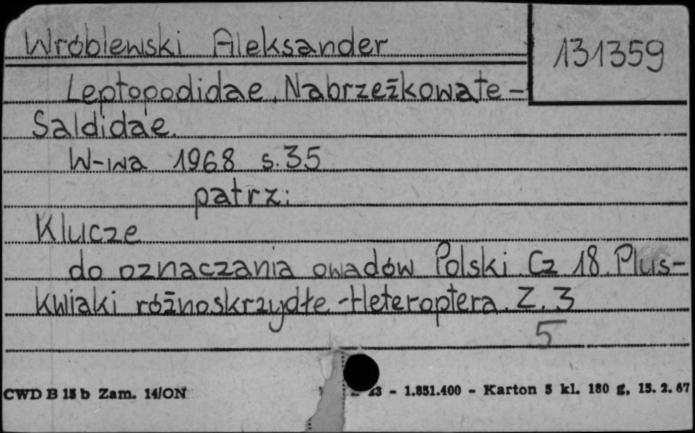 Wróblewski Aleksander
131359
Leptopodidae, Nabrzeżkowate -
Saldidae.
W-wa 1968 s. 35
patrz:
Klucze
do oznaczania owadów Polski Cz 18 Plus-
kwiaki różnoskrzydłe - Heteroptera. Z. 3
5
CWD B 15 b Zam. 14/ON
- 1.851.400 - Karton 5 kl. 180 g, 15. 2. 67